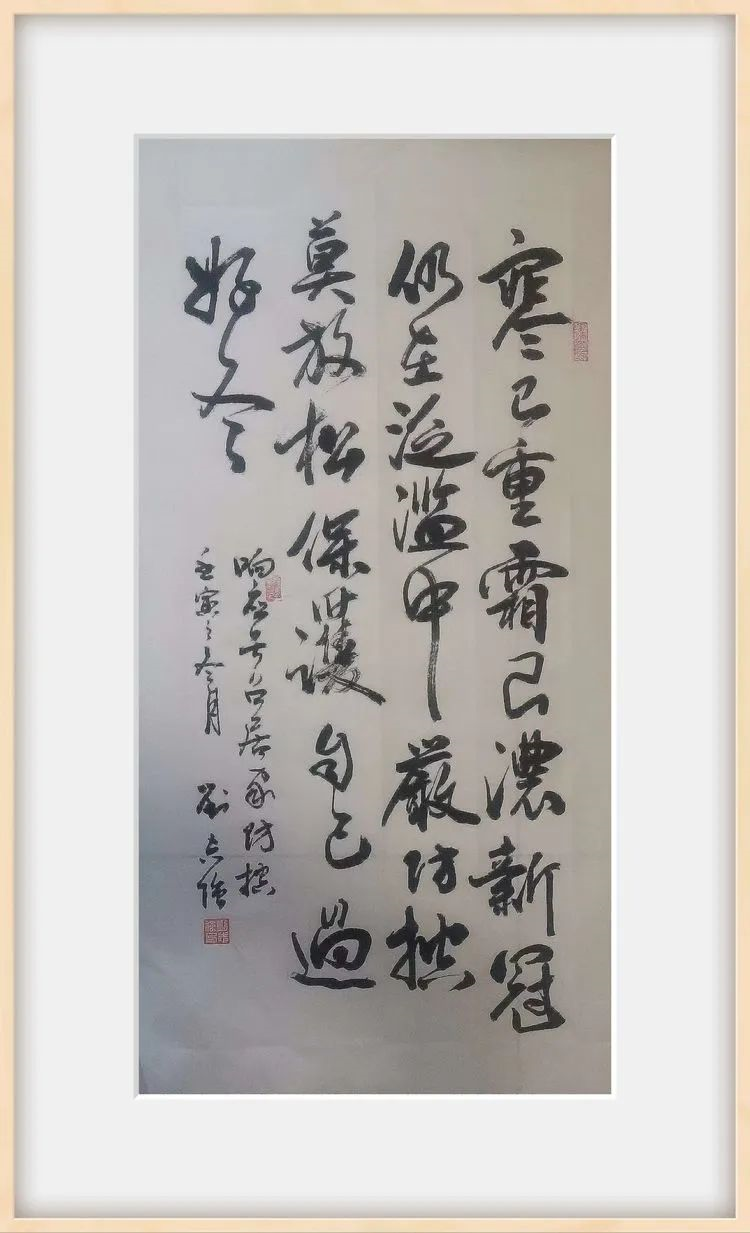 寒已重霜已濃新冠
仍在泛濫中嚴防控
莫放松保護自己過
好冬
响应号召居家防控
壬寅之冬月
劉